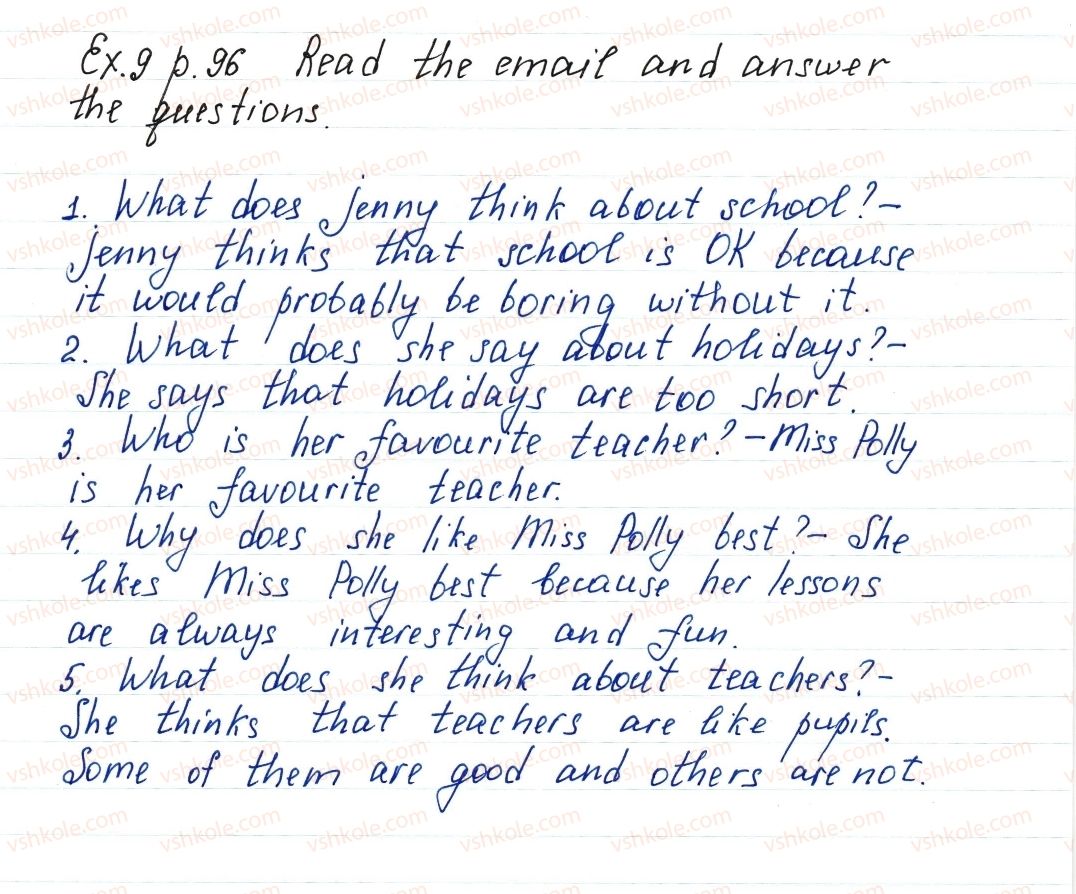 Ex.9 p.96 Read the email and answer
the questions.
1. What does Jenny think about school?-
Jenny thinks that school is OK because
it would probably be boring without it.
2. What does she say about holidays?-
She says that holidays are too short.
3. Who is her favourite teacher?-Miss Polly
is her favourite teacher.
4. Why does she like Miss Polly best?- She
likes Miss Polly best because her lessons
are always interesting and fun.
5. What does she think about teachers?-
She thinks that teachers are like pupils.
Some of them are good and others are not.
vshkole.com